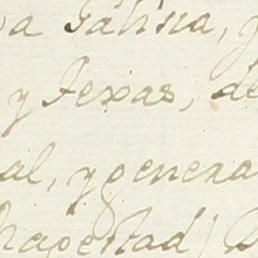 a Galicia,
y Texas, de
al, y genera
Magestad